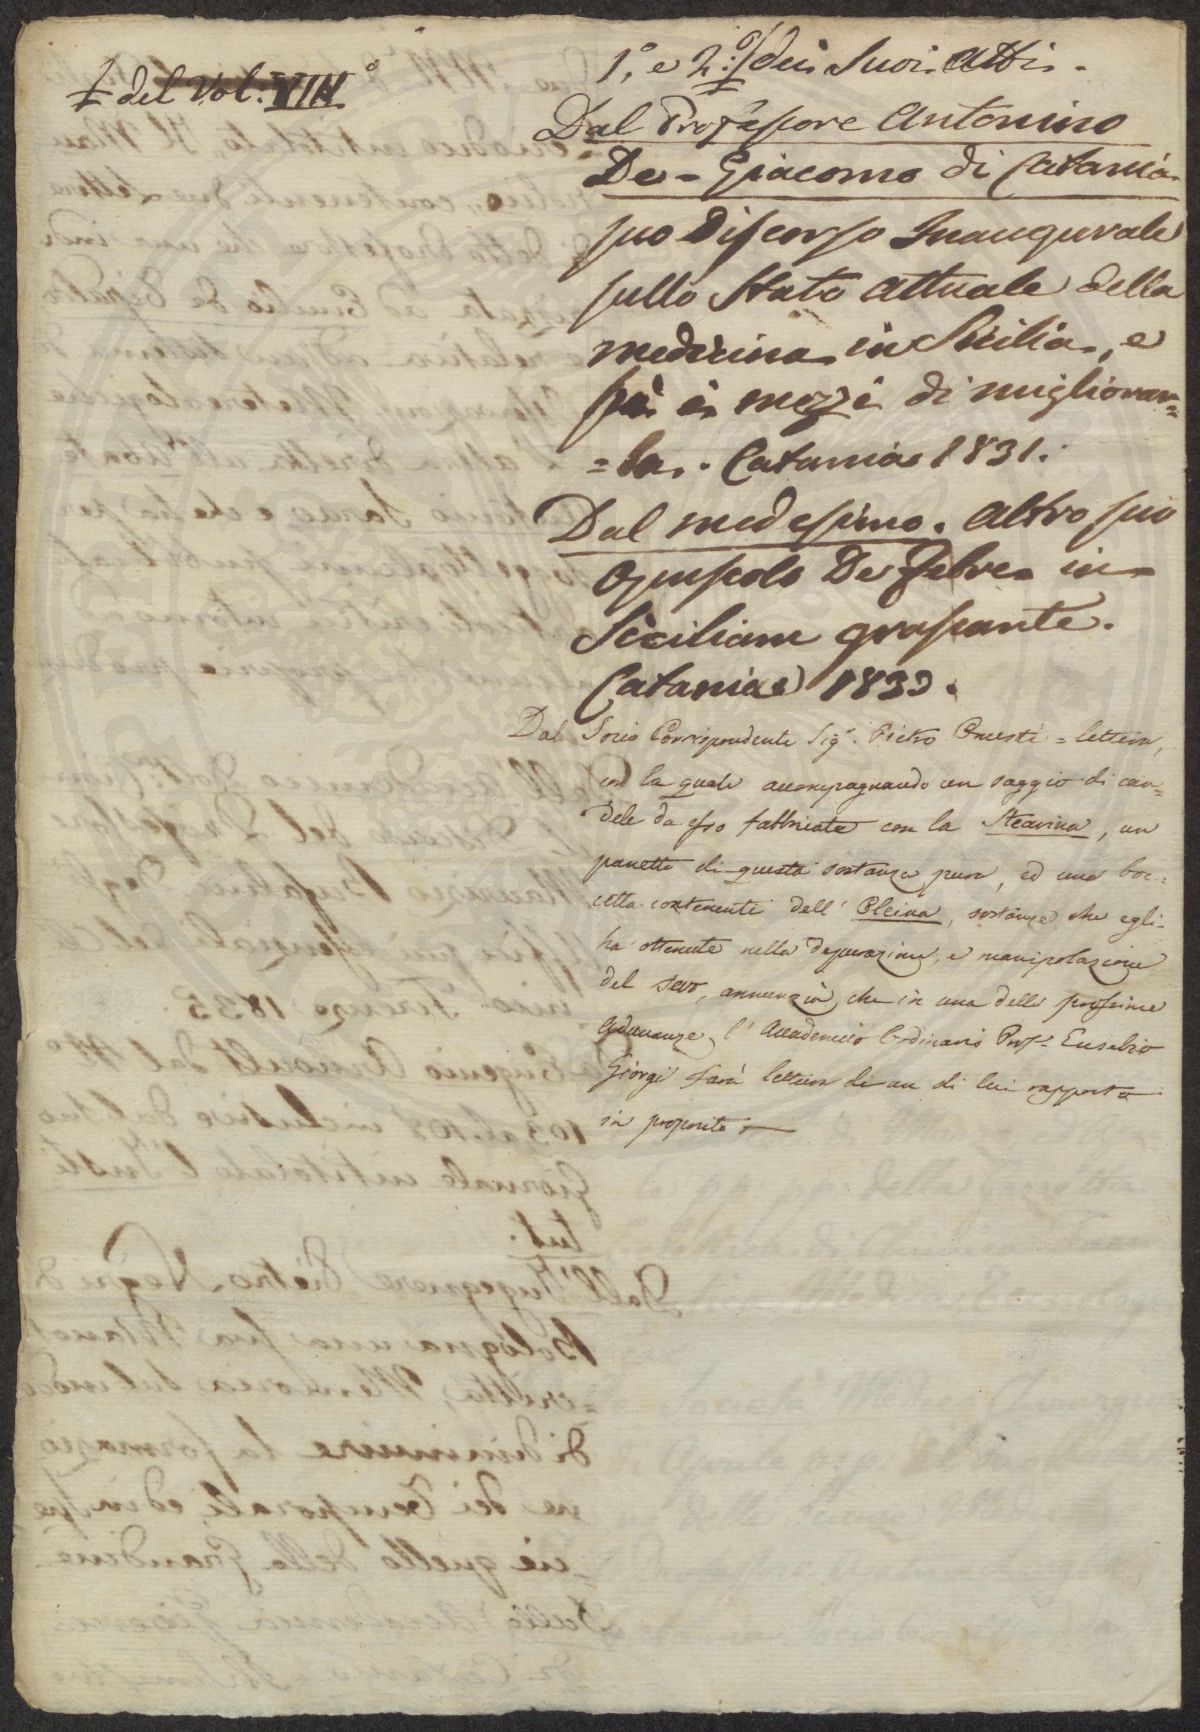 1.° e 2.° dei Suoi Atti.
⨍ del Vol: VIII°
Dal Professore Antonino
De-Giacomo di Catania
suo Discorso Inaugurale
sullo Stato attuale della
medicina in Sicilia, e
su i mezzi di migliorar=
=la. Catania 1831.
Dal medesimo. altro suo
Opuscolo De Febre in
Siciliam grassante.
Cataniae 1833.
Dal Socio Corrispondente Sig.r Pietro Onesti = lettera,
con la quale accompagnando un saggio di can=
dele da esso fabbricate con la Stearina, un
panetto di questa sostanza pura, ed una boc=
cetta contenente dell' Oleina, sostanze che egli
ha ottenute nella depurazione, e manipolazione
del sevo, annunzia che in una delle prossime
Adunanze l'Accademico Ordinario Prof.r Eusebio
Giorgi farà lettura di un di lui rapporto
in proposito